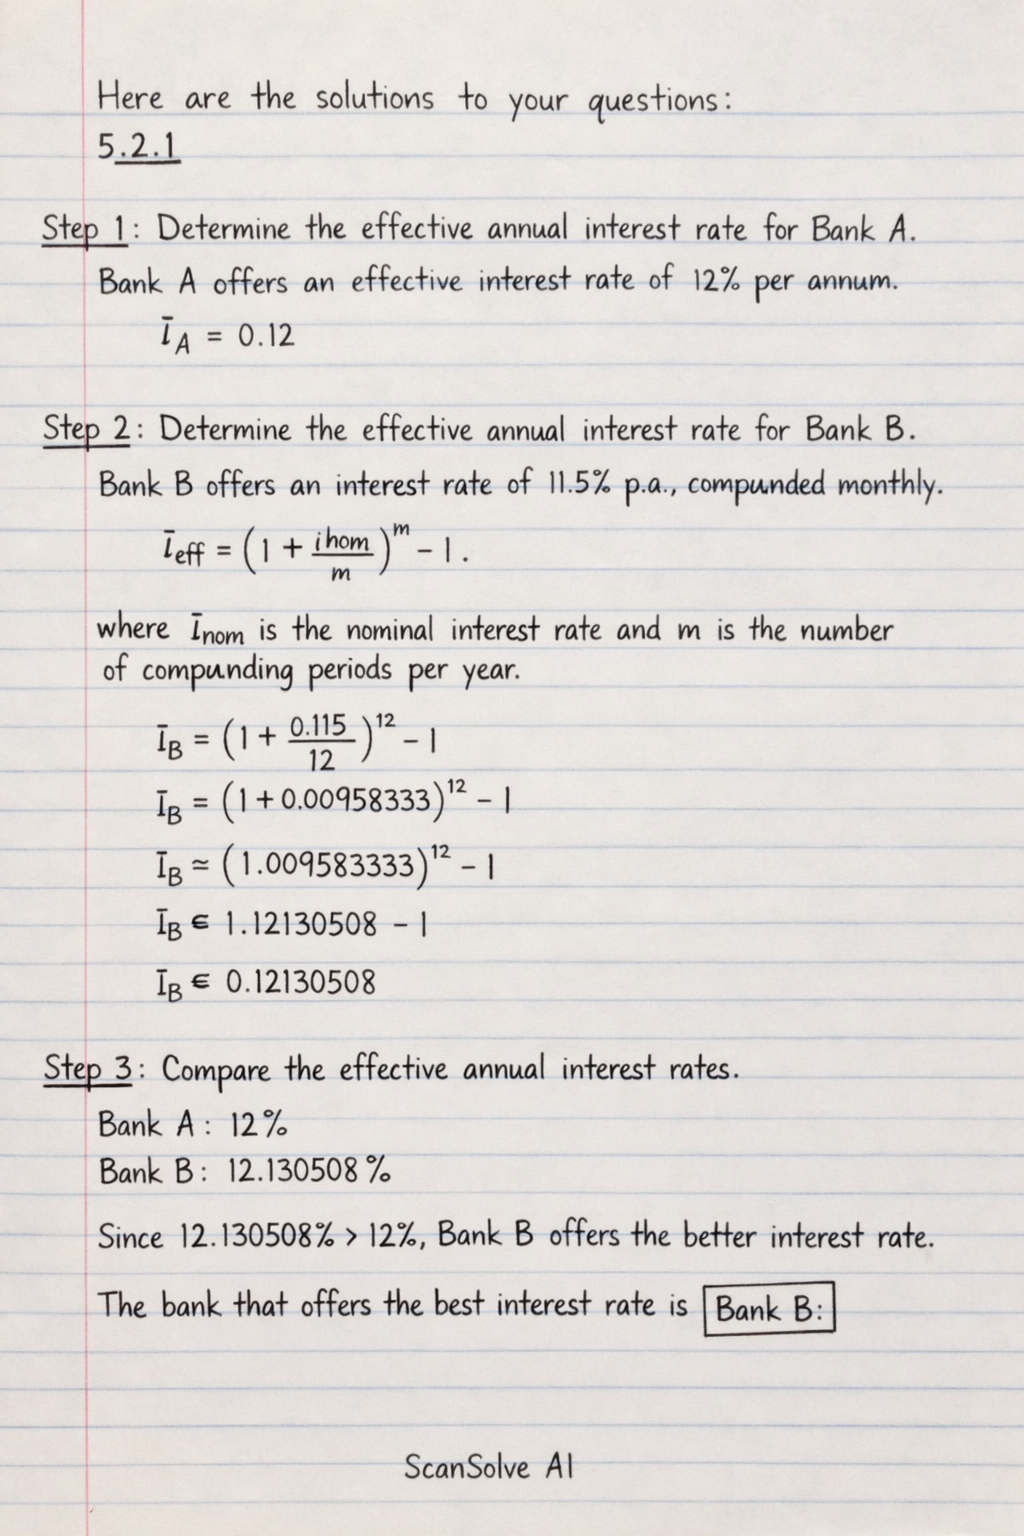 Here are the solutions to your questions:
5.2.1
Step 1: Determine the effective annual interest rate for Bank A.
Bank A offers an effective interest rate of 12% per annum.
ī_A = 0.12
Step 2: Determine the effective annual interest rate for Bank B.
Bank B offers an interest rate of 11.5% p.a., compunded monthly.
ī_eff = (1 + ihom/m)^m - 1.
where Ī_nom is the nominal interest rate and m is the number
of compunding periods per year.
Ī_B = (1 + 0.115/12)^12 - 1
Ī_B = (1 + 0.00958333)^12 - 1
Ī_B ≃ (1.009583333)^12 - 1
Ī_B ∈ 1.12130508 - 1
Ī_B ∈ 0.12130508
Step 3: Compare the effective annual interest rates.
Bank A: 12%
Bank B: 12.130508%
Since 12.130508% > 12%, Bank B offers the better interest rate.
The bank that offers the best interest rate is Bank B:
ScanSolve AI